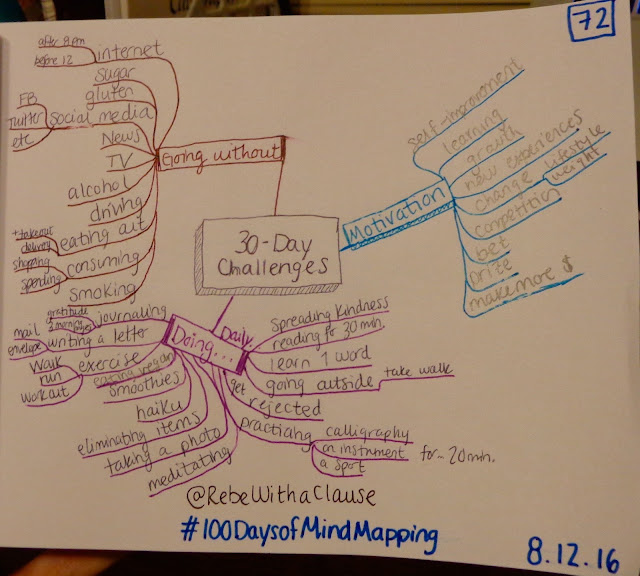 72
30-Day
Challenges
Going without
after 8 pm
before 12
internet
sugar
gluten
FB
Twitter
etc
social media
News
TV
alcohol
driving
+ takeout
delivery
eating out
shopping
spending
consuming
smoking
Motivation
self-improvement
learning
growth
new experiences
change
lifestyle
weight
competition
bet
prize
make more $
Doing...
Daily
gratitude
journaling
mail
envelope
writing a letter
walk
run
workout
exercise
eating vegan
smoothies
haiku
eliminating items
taking a photo
meditating
spreading kindness
reading for 30 min.
learn 1 word
going outside
take walk
get
rejected
practicing
calligraphy
an instrument
a spot
for ~20 min.
@RebeWithaClause
#100DaysofMindMapping
8.12.16